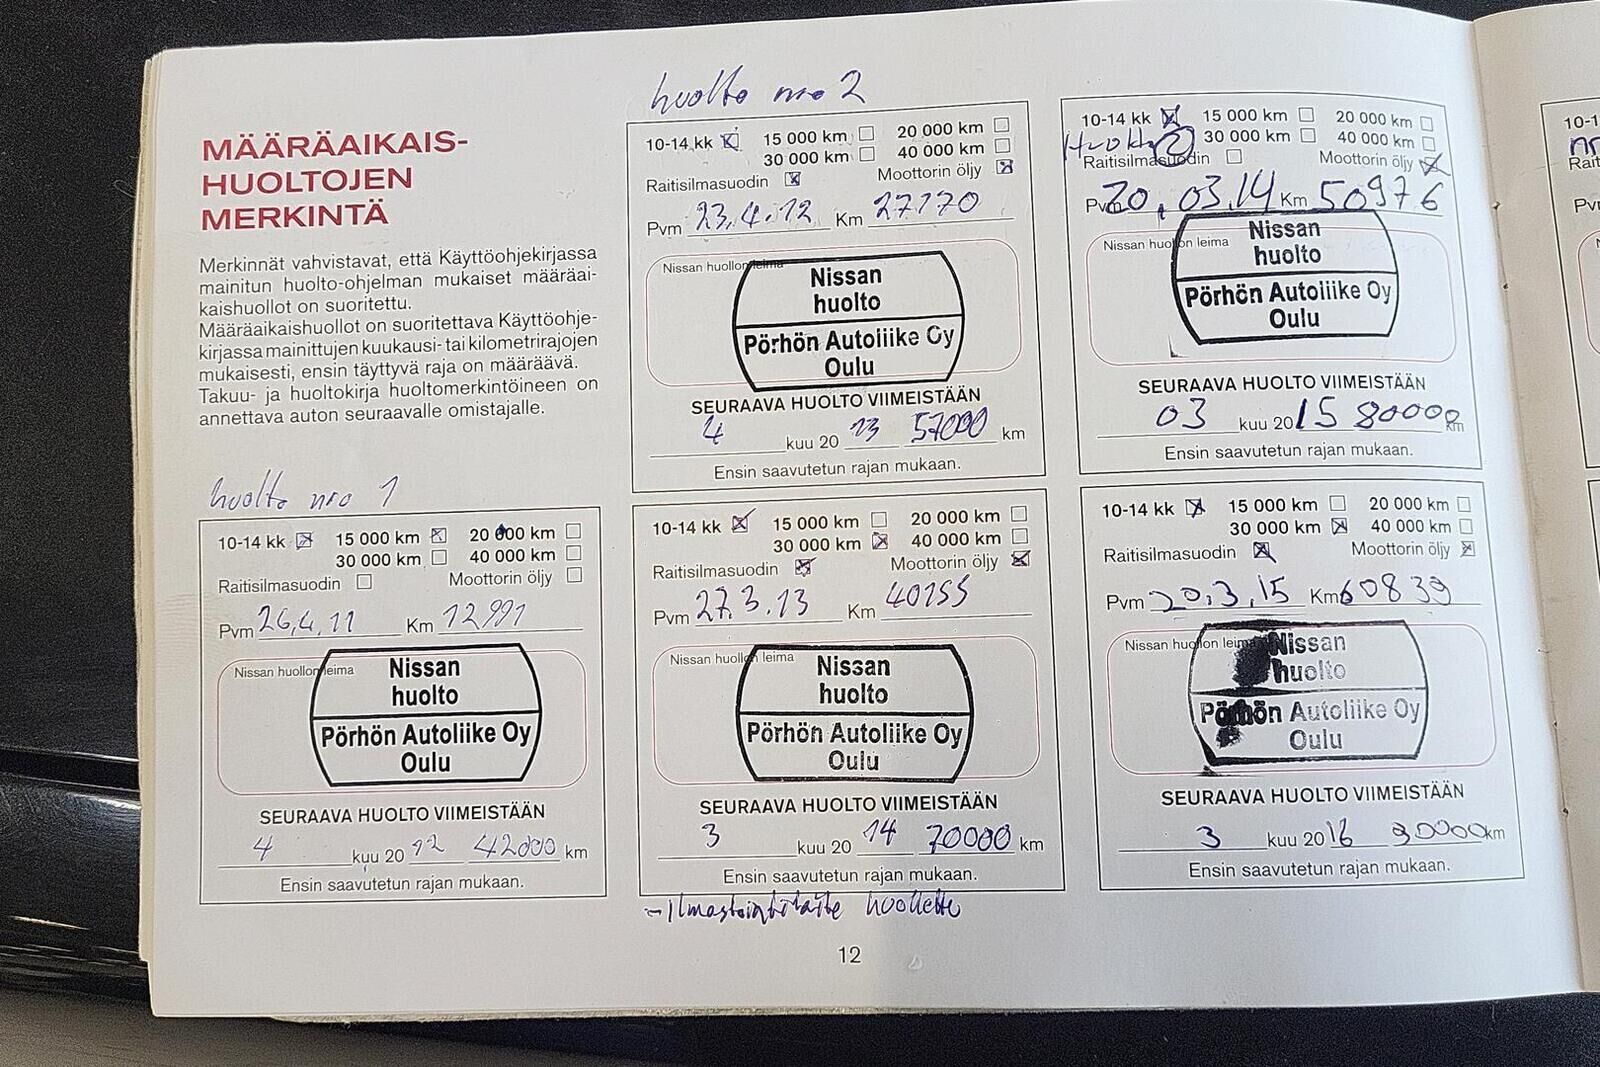 MÄÄRÄAIKAIS-
HUOLTOJEN
MERKINTÄ
Merkinnät vahvistavat, että Käyttöohjekirjassa
mainitun huolto-ohjelman mukaiset määräai-
kaishuollot on suoritettu.
Määräaikaishuollot on suoritettava Käyttöohje-
kirjassa mainittujen kuukausi- tai kilometrirajojen
mukaisesti, ensin täyttyvä raja on määräävä.
Takuu- ja huoltokirja huoltomerkintöineen on
annettava auton seuraavalle omistajalle.
huolto nro 1
10-14 kk 15 000 km 20 000 km
30 000 km 40 000 km
Raitisilmasuodin Moottorin öljy
Pvm 26.4.11 Km 12991
Nissan huollon leima
Nissan
huolto
Pörhön Autoliike Oy
Oulu
SEURAAVA HUOLTO VIIMEISTÄÄN
4 kuu 20 12 42000 km
Ensin saavutetun rajan mukaan.
huolto nro 2
10-14 kk 15 000 km 20 000 km
30 000 km 40 000 km
Raitisilmasuodin Moottorin öljy
Pvm 23.4.12 Km 27170
Nissan huollon leima
Nissan
huolto
Pörhön Autoliike Oy
Oulu
SEURAAVA HUOLTO VIIMEISTÄÄN
4 kuu 20 13 57000 km
Ensin saavutetun rajan mukaan.
10-14 kk 15 000 km 20 000 km
30 000 km 40 000 km
Raitisilmasuodin Moottorin öljy
Pvm 27.3.13 Km 40155
Nissan huollon leima
Nissan
huolto
Pörhön Autoliike Oy
Oulu
SEURAAVA HUOLTO VIIMEISTÄÄN
3 kuu 20 14 70000 km
Ensin saavutetun rajan mukaan.
- Ilmastointilaite huollettu
10-14 kk 15 000 km 20 000 km
30 000 km 40 000 km
Raitisilmasuodin Moottorin öljy
Pvm 20.03.14 Km 50976
Nissan huollon leima
Nissan
huolto
Pörhön Autoliike Oy
Oulu
SEURAAVA HUOLTO VIIMEISTÄÄN
03 kuu 20 15 80000 km
Ensin saavutetun rajan mukaan.
10-14 kk 15 000 km 20 000 km
30 000 km 40 000 km
Raitisilmasuodin Moottorin öljy
Pvm 20.3.15 Km 60839
Nissan huollon leima
Nissan
huolto
Pörhön Autoliike Oy
Oulu
SEURAAVA HUOLTO VIIMEISTÄÄN
3 kuu 20 16 90000 km
Ensin saavutetun rajan mukaan.
12